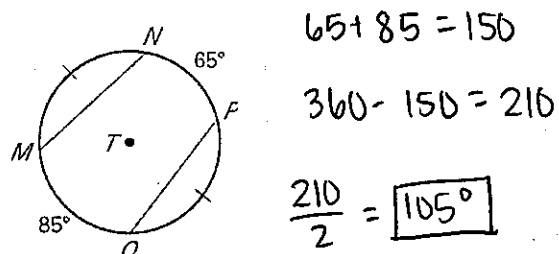 N
65°
P
M
T
85°
O
65 + 85 = 150
360 - 150 = 210
210
2
= 105°